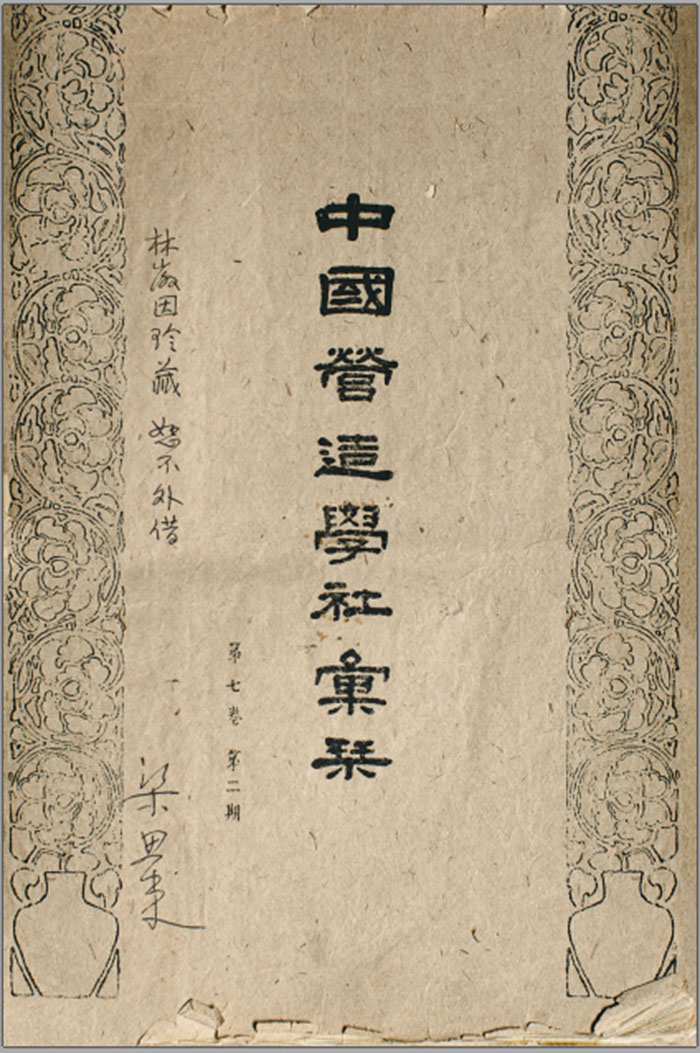 中國營造學社彙栞
第七卷 第二期
林徽因珍藏 恕不外借
梁思成